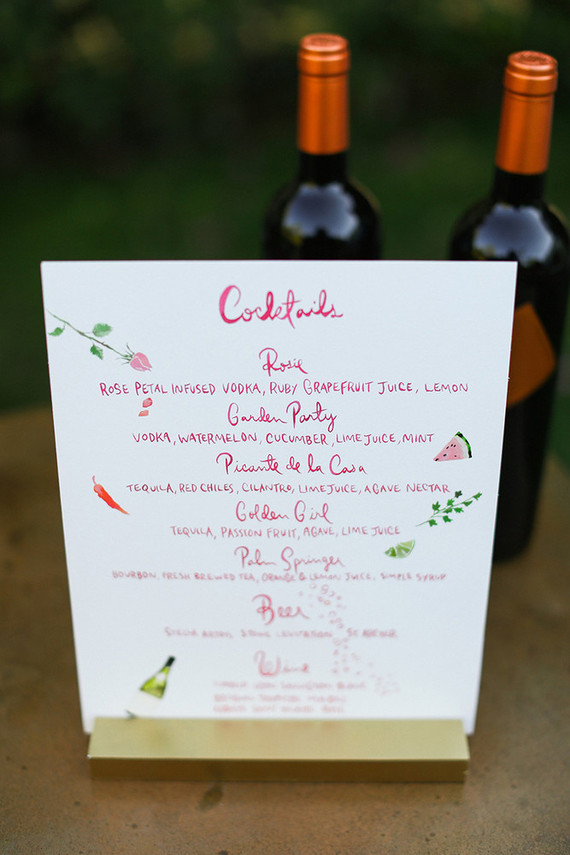 Cocktails
Rosie
ROSE PETAL INFUSED VODKA, RUBY GRAPEFRUIT JUICE, LEMON
Garden Party
VODKA, WATERMELON, CUCUMBER, LIME JUICE, MINT
Picante de la Casa
TEQUILA, RED CHILES, CILANTRO, LIME JUICE, AGAVE NECTAR
Golden Girl
TEQUILA, PASSION FRUIT, AGAVE, LIME JUICE
Palm Springer
BOURBON, FRESH BREWED TEA, ORANGE & LEMON JUICE, SIMPLE SYRUP
Beer
STELLA ARTOIS, STONE
Wine